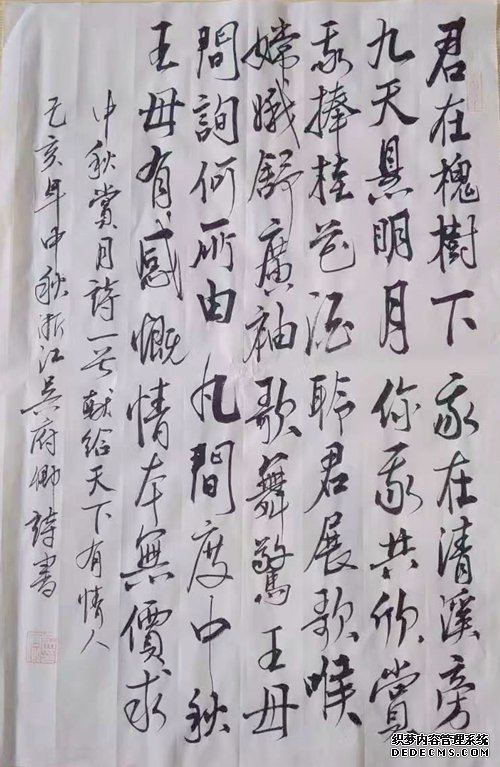 君在槐樹下我在清溪旁
九天懸明月你我共欣賞
我捧桂花酒聆君展歌喉
嫦娥舒廣袖歌舞驚王母
問詢何所由凡間度中秋
王母有感慨情本無價求
中秋賞月詩一首献給天下有情人
己亥年中秋浙江吳府卿詩書
织梦内容管理系统
DEDECMS.COM